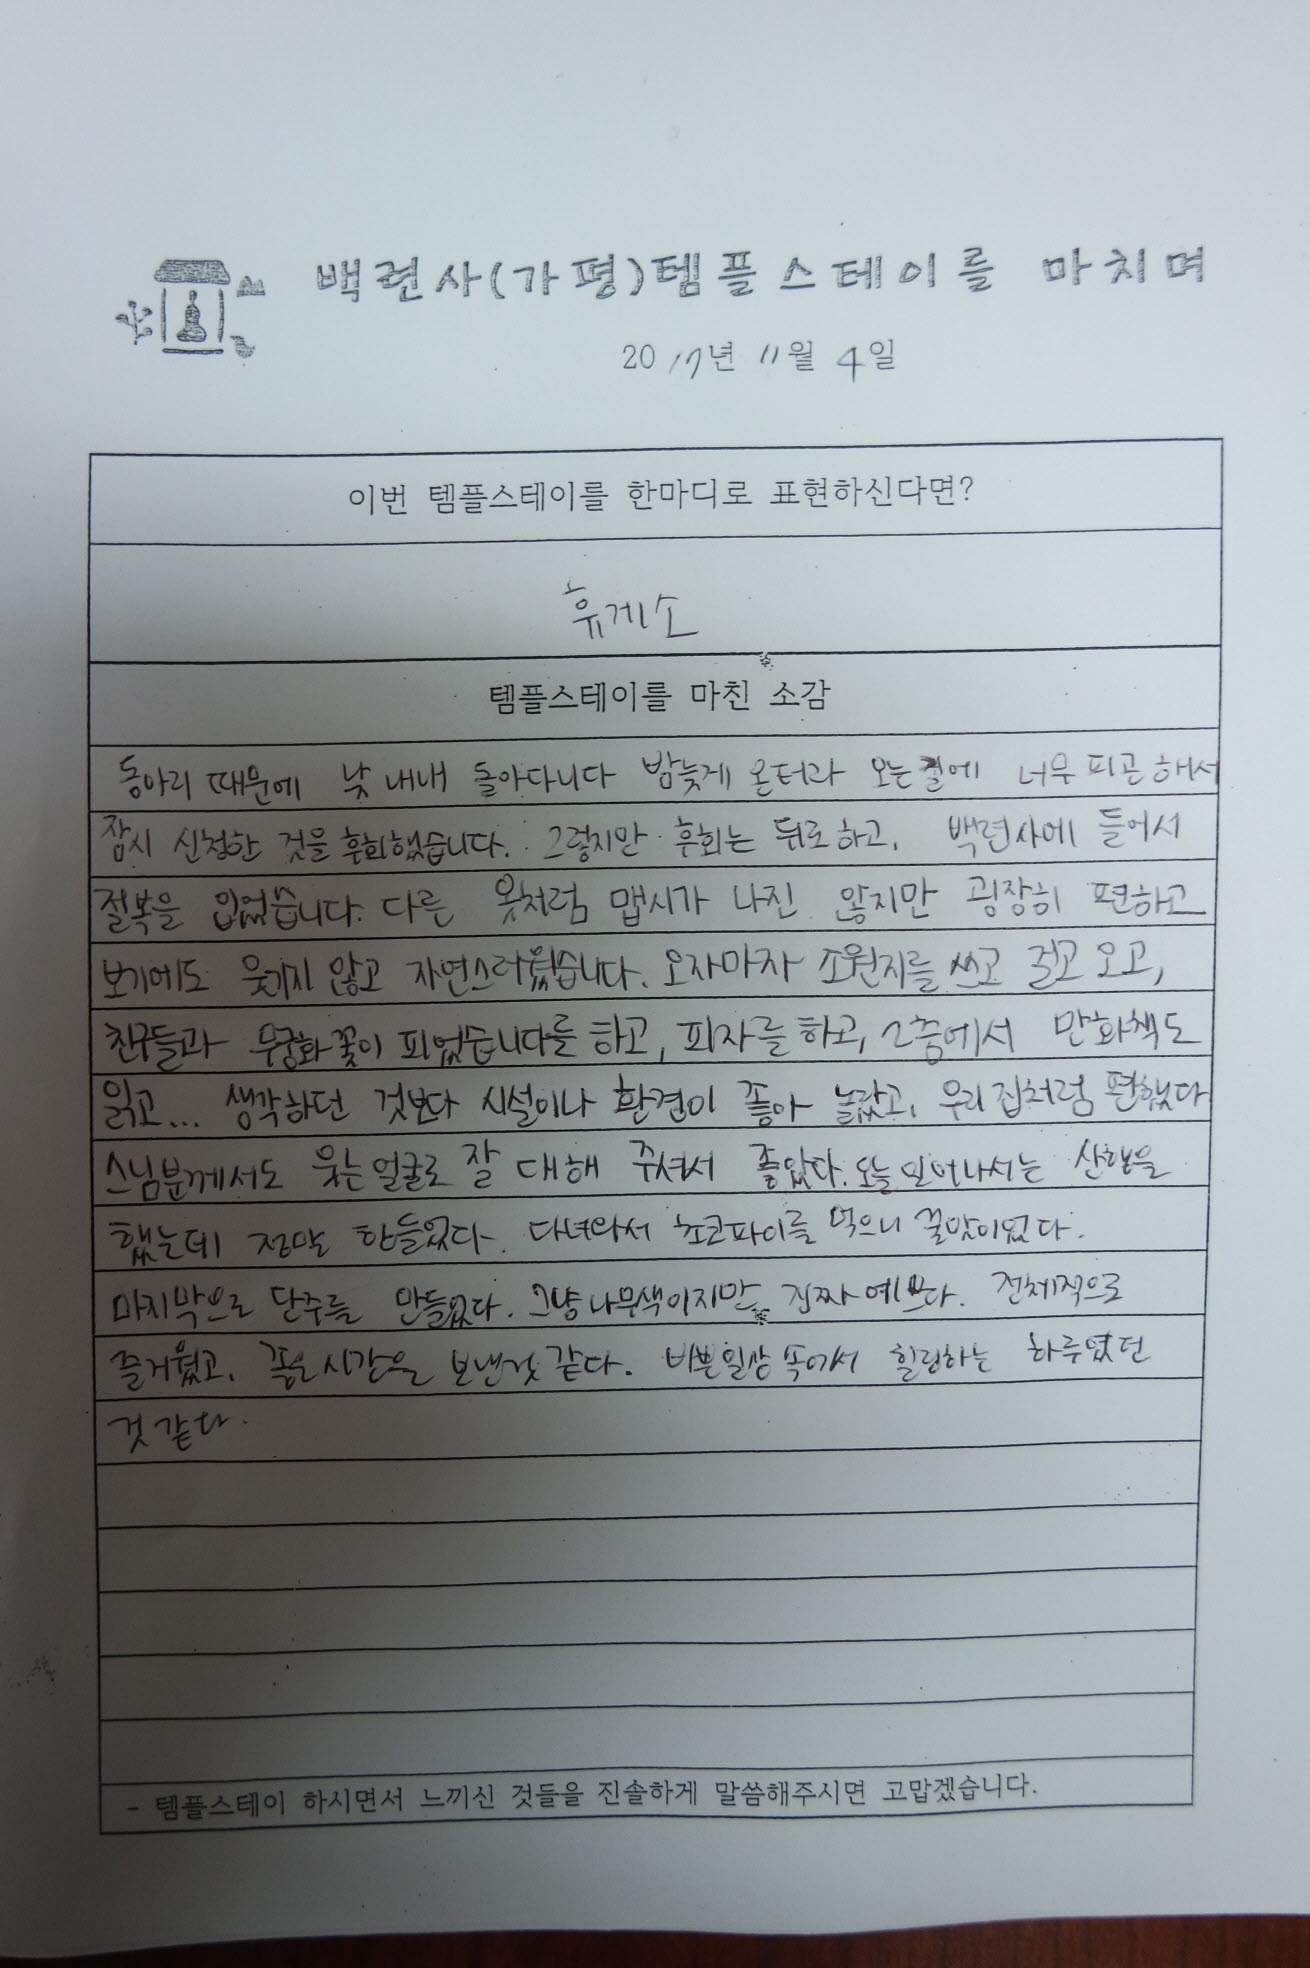 백련사(가평)템플스테이를 마치며
2017년 11월 4일
이번 템플스테이를 한마디로 표현하신다면?
휴게소
템플스테이를 마친 소감
동아리 때문에 낮 내내 돌아다니다 밤늦게 온터라 오는 길에 너무 피곤해서
잠시 신청한 것을 후회했습니다. 그렇지만 후회는 뒤로하고, 백련사에 들어서
절복을 입었습니다. 다른 옷처럼 맵시가 나진 않지만 굉장히 편하고
보기에도 웃기지 않고 자연스러웠습니다. 오자마자 소원지를 쓰고 걸고 오고,
친구들과 무궁화 꽃이 피었습니다를 하고, 피자를 하고, 2층에서 만화책도
읽고... 생각하던 것보다 시설이나 환경이 좋아 놀랐고, 우리 집처럼 편했다
스님분께서도 웃는 얼굴로 잘 대해 주셔서 좋았다. 오늘 일어나서는 산행을
했는데 정말 힘들었다. 다녀와서 초코파이를 먹으니 꿀맛이었다.
마지막으로 단주를 만들었다. 그냥 나무색이지만 진짜 예쁘다. 전체적으로
즐거웠고, 좋은 시간을 보낸것 같다. 바쁜 일상 속에서 힐링하는 하루였던
것 같다.
- 템플스테이 하시면서 느끼신 것들을 진솔하게 말씀해주시면 고맙겠습니다.